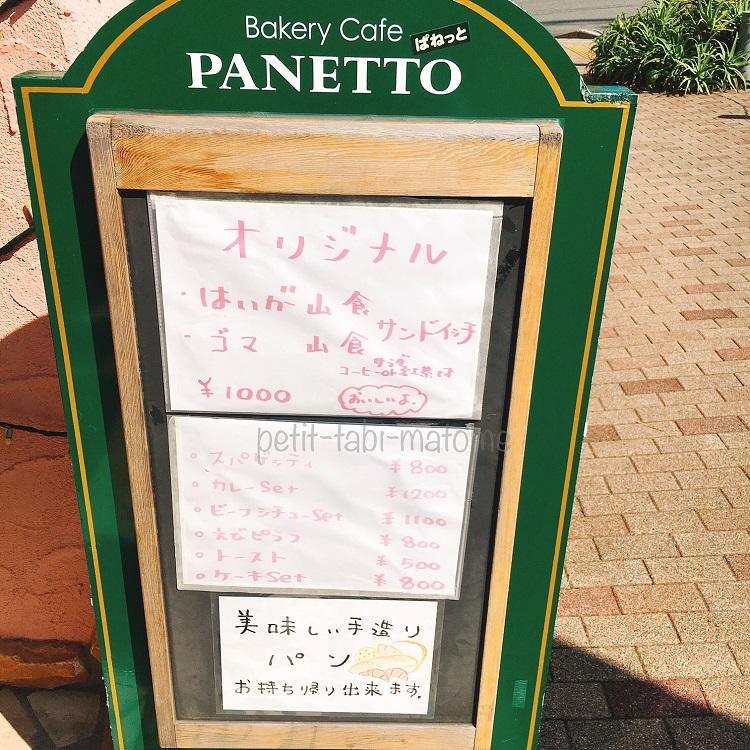 Bakery Cafe
ぱねっと
PANETTO
オリジナル
・はいが山食
・ゴマ 山食
サンドイッチ
サラダ
コーヒーor紅茶付
¥1000
おいしいよ。
petit-tabi-matome
○スパゲッティ ¥800
○カレーSet ¥1200
○ビーフシチューSet ¥1100
○えびピラフ ¥800
○トースト ¥500
○ケーキSet ¥800
美味しい手造り
パン
お持ち帰り出来ます。